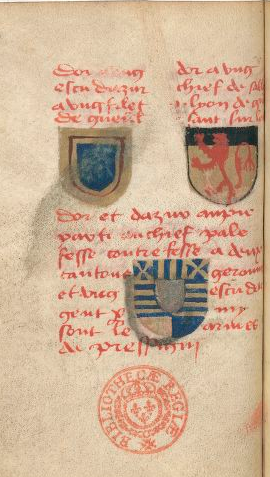 dor a ung
escu dazur
a ung filet
de gueul
dor a ung
chief de sable
lyon de gu
sant sur
dor et dazur au pie
party au chief pale
fesse contre fesse a deux
cantons geron
et ung escu dar
gent
sont les armes
de pressigni
BIBLIOTHECÆ REGIÆ